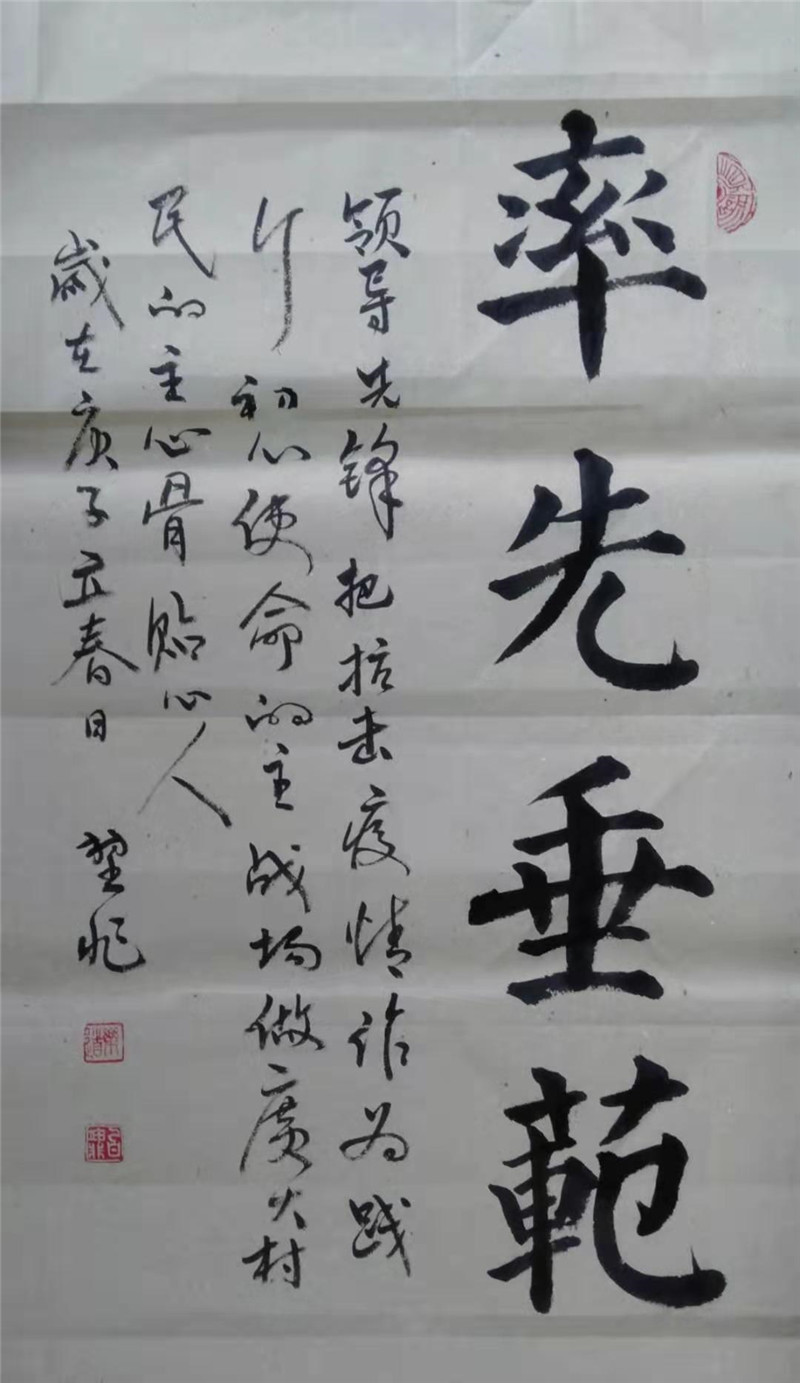 率先垂範
领导先锋把抗击疫情作为践
行初心使命的主战场做廣大村
民的主心骨贴心人
歲在庚子立春日